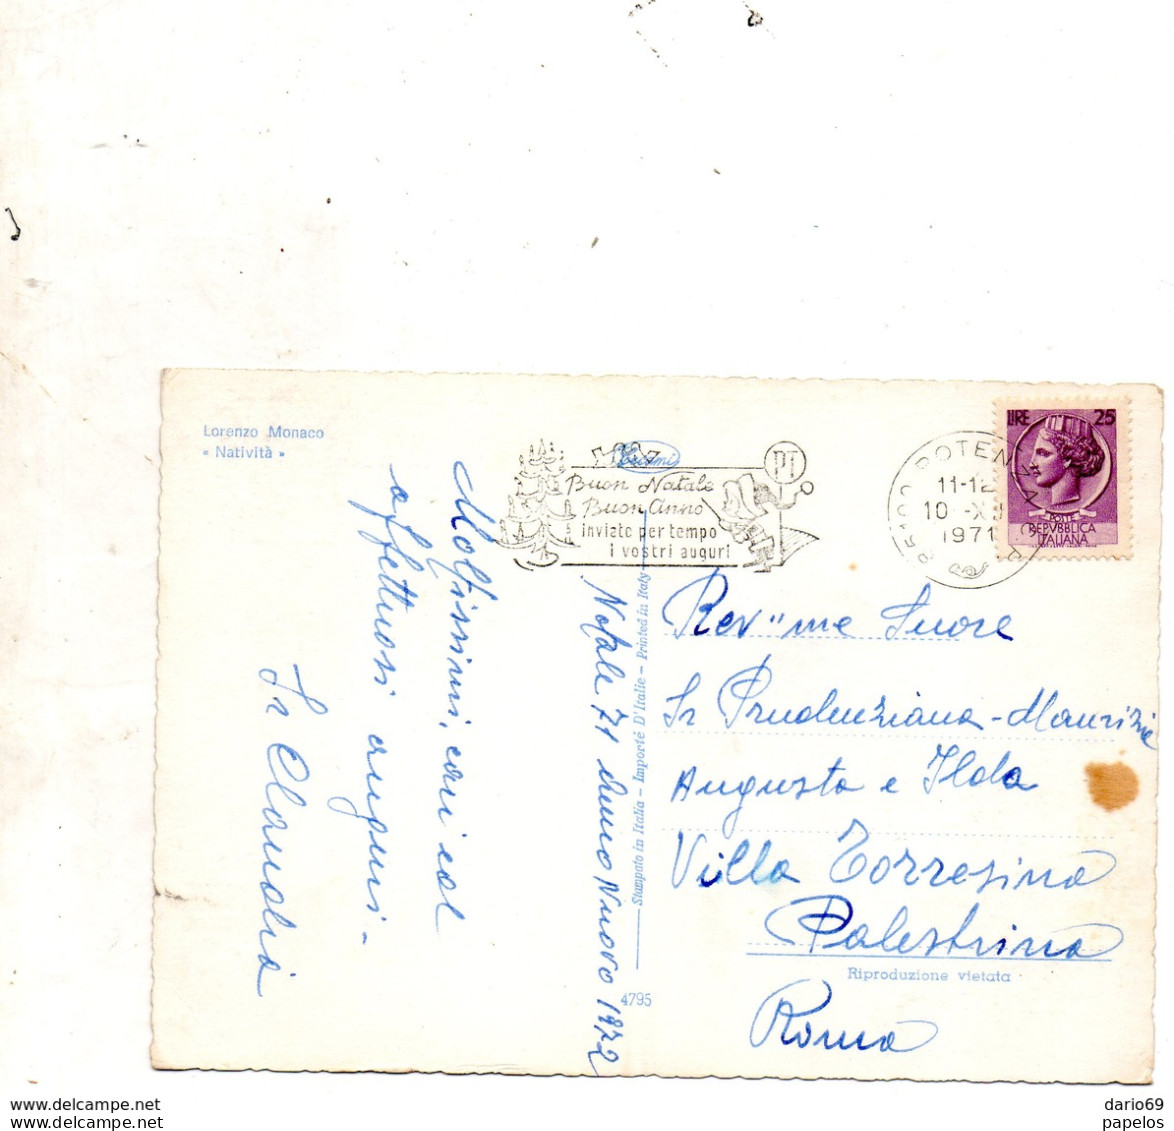 Lorenzo Monaco
« Natività »
Cecami
Buon Natale
Buon Anno
inviate per tempo
i vostri auguri
PT
POTENZA
11-12
10 -X
1971
LIRE 25
POSTE
REPVBBLICA
ITALIANA
Moltissimi, cari ed
affettuosi auguri -
Sr Claudia
Natale 71 Anno Nuovo 1972
Stampato in Italia - Importé D'Italie - Printed in Italy
4795
Rev"me Suore
Sr Prudenziana - Maurizie
Augusta e Ilda
Villa Torresina
Palestrina
Riproduzione vietata
Roma
dario69
papelos